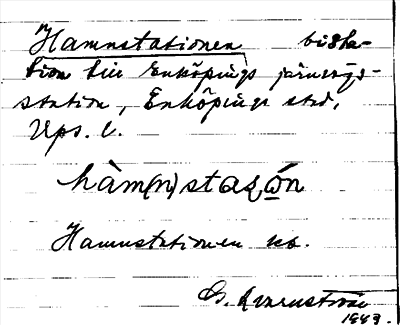 Hamnstationen bista-
tion till Enköpings järnvägs-
station, Enköpings stad,
Ups. l.
hàm(n)staʃɷ́n
Hamnstationen
G.
1943.